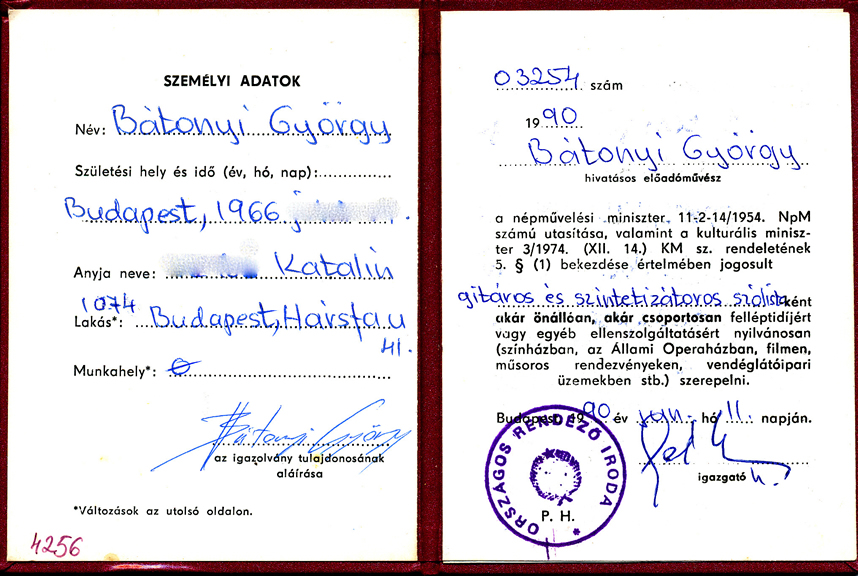 SZEMÉLYI ADATOK
Név: Bátonyi György
Születési hely és idő (év, hó, nap):
Budapest, 1966
Anyja neve: Katalin
1074
Lakás*: Budapest, Hársfa u
41.
Munkahely*: 0
Bátonyi György
az igazolvány tulajdonosának
aláírása
*Változások az utolsó oldalon.
4256
03254 szám
1990
Bátonyi György
hivatásos előadóművész
a népművelési miniszter 11-2-14/1954. NpM
számú utasítása, valamint a kulturális minisz-
ter 3/1974. (XII. 14.) KM sz. rendeletének
5. § (1) bekezdése értelmében jogosult
gitáros és szintetizátoros szólistaként
akár önállóan, akár csoportosan felléptidíjért
vagy egyéb ellenszolgáltatásért nyilvánosan
(színházban, az Állami Operaházban, filmen,
műsoros rendezvényeken, vendéglátóipari
üzemekben stb.) szerepelni.
Budapest, 1990 év jun. hó 11. napján.
ORSZÁGOS RENDEZŐ IRODA
P. H.
igazgató h.